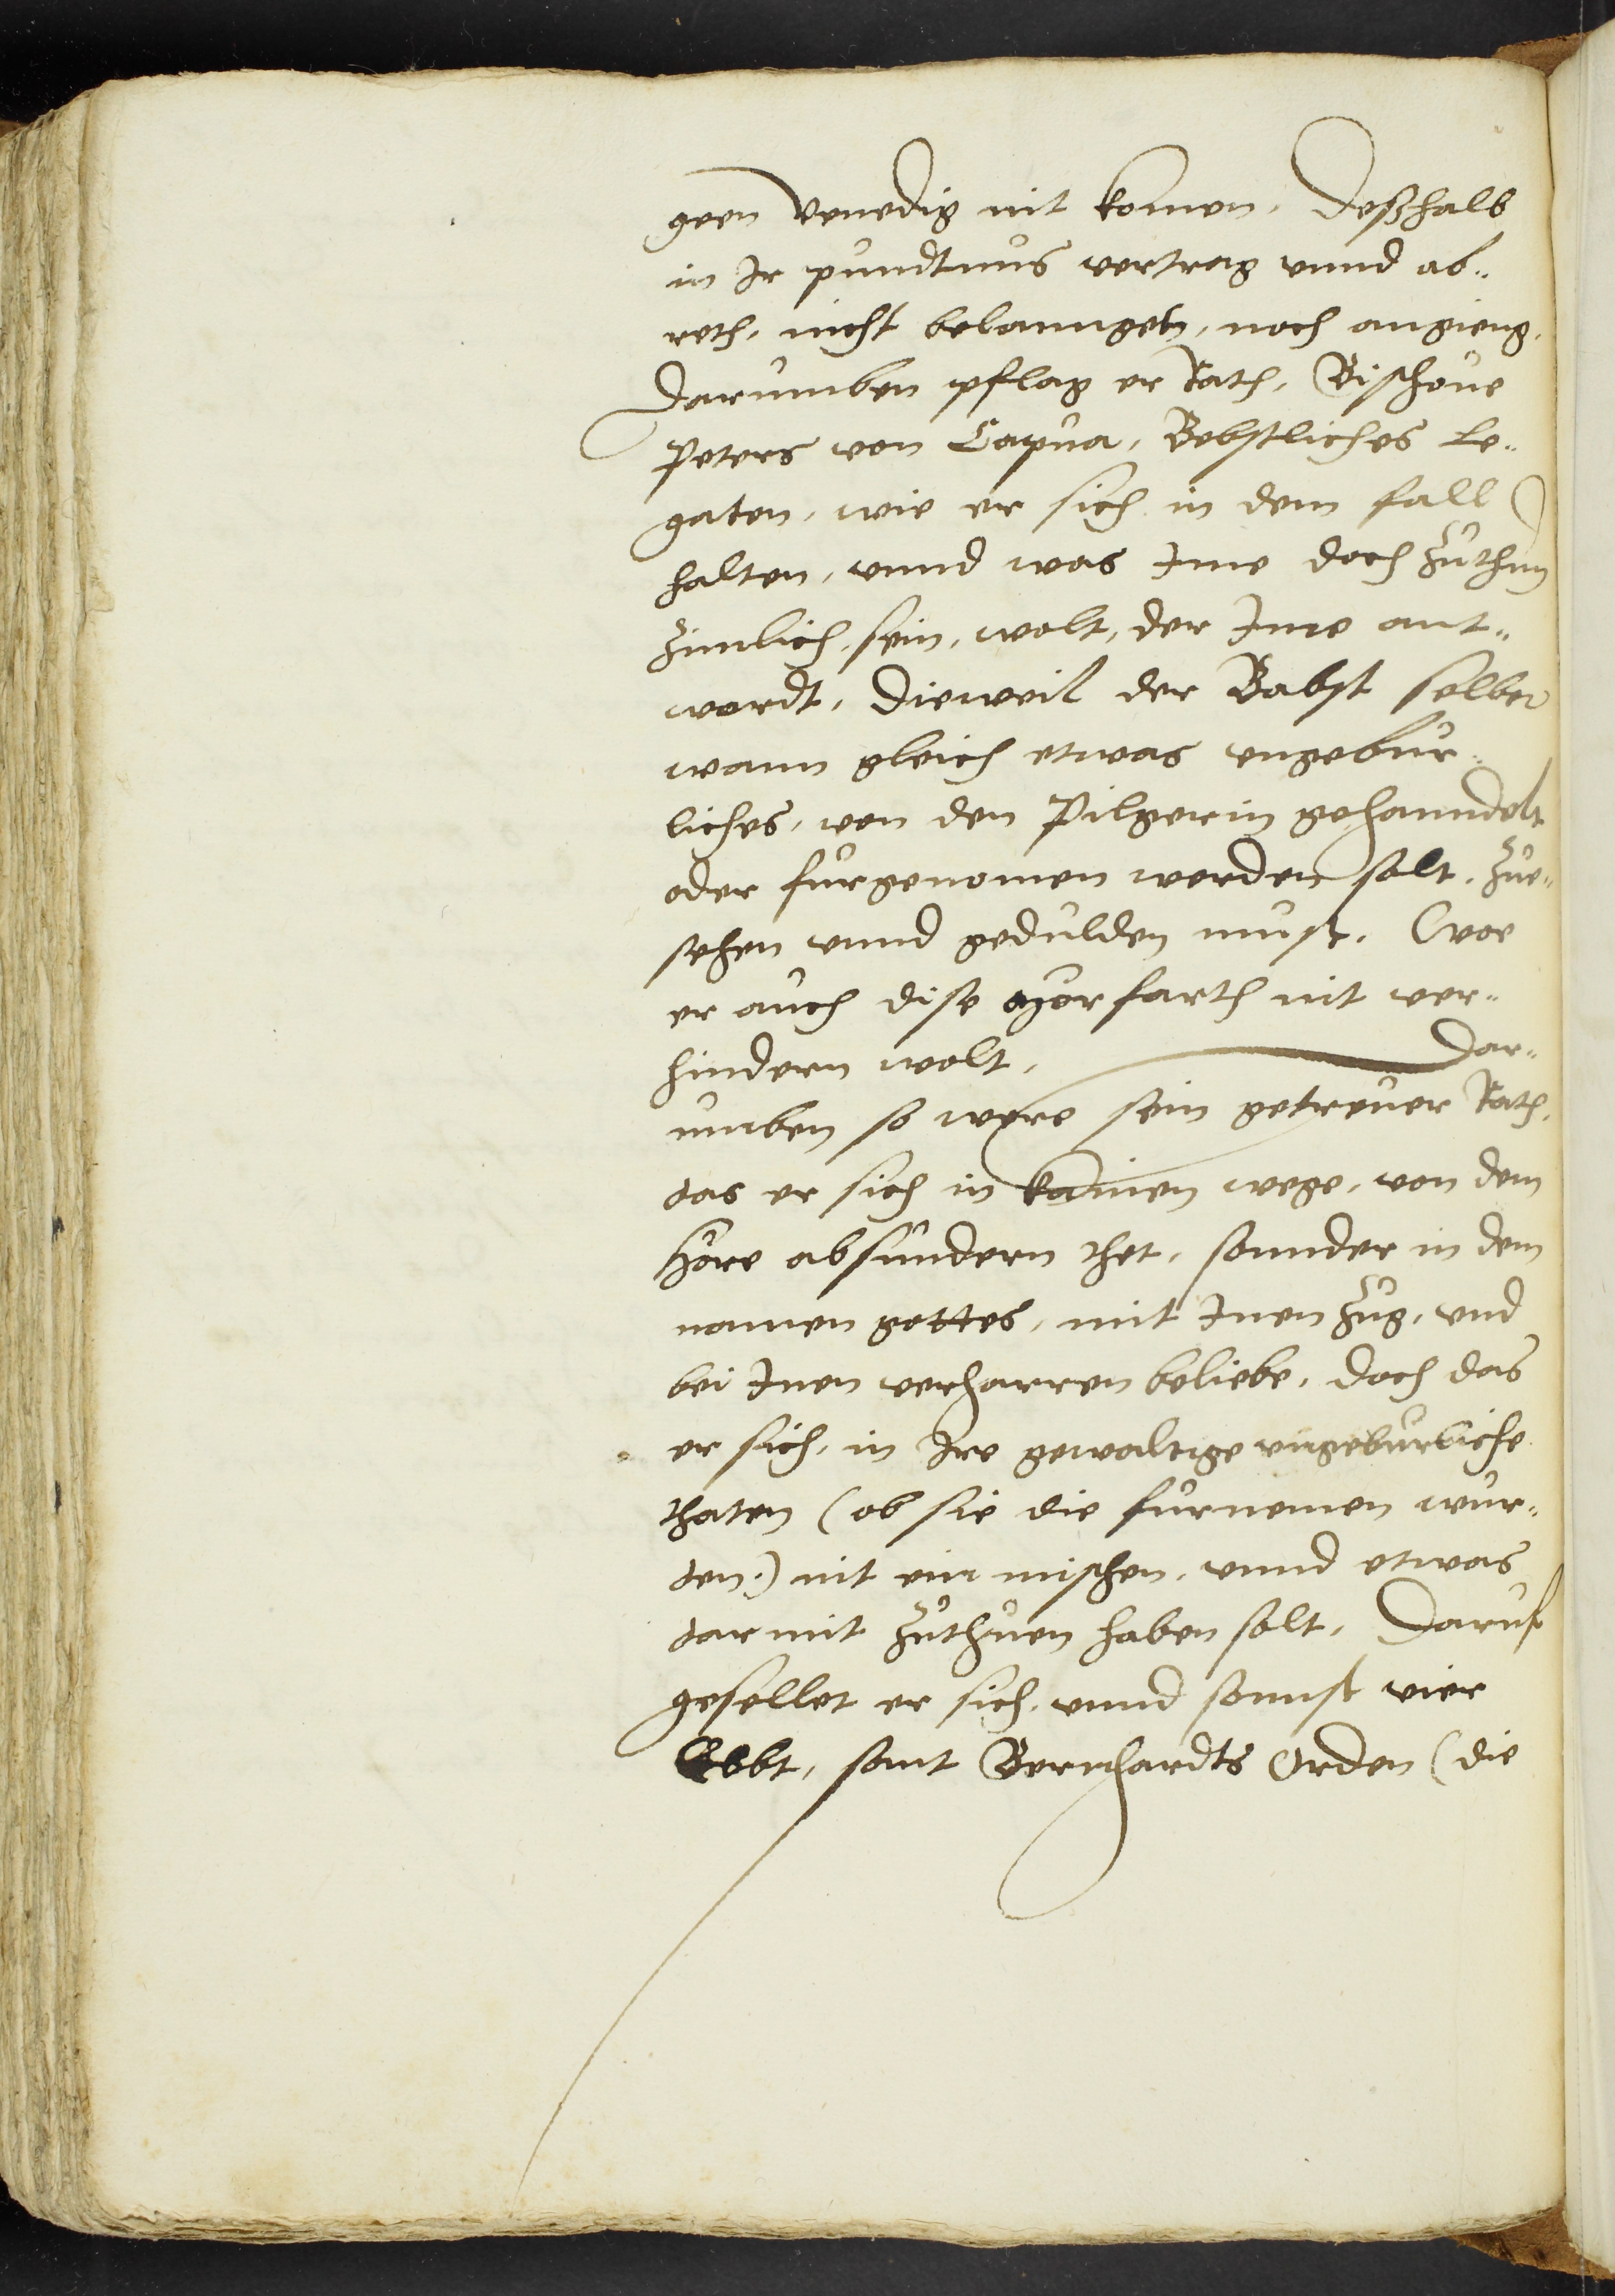 geen Venedig nit komen, Deßhalb
in Ir pundtnus vertrag vnnd ab¬
reth, nicht belannget, noch angieng,
Darumben pflag er Rath, Bischoue
Peters von Capua, Bebstliches Le¬
gaten, wie er sich in dem fall
halten, vnnd was Ime doch zuthun
zimlich, sein, wolt, der Ime ant¬
wordt, Dieweil der Babst selber
wann gleich etwas vngebur¬
liches, von den Pilgerin gehanndelt
oder furgenomen werden solt, zue¬
sehen vnnd gedulden must, (wo
er auch dise Hörfarth nit ver¬
hindern wolt, Dar¬
umben so were sein getreuer Rath,
das er sich in kainen wege, von dem
Höre absundern thet, sonnder in dem
namen gottes, mit Inen zug, vnd
bei Inen verharren beliebe, doch das
er sich, in Ire gewaltige vngeburliche
thaten (ob sie die furnemen wur¬
den) nit ein mischen, vnnd etwas
darmit zuthuen haben solt, Daruf
gesellet er sich, vnnd sonnst vier
Ebbt, sant Bernhardts Orden (die